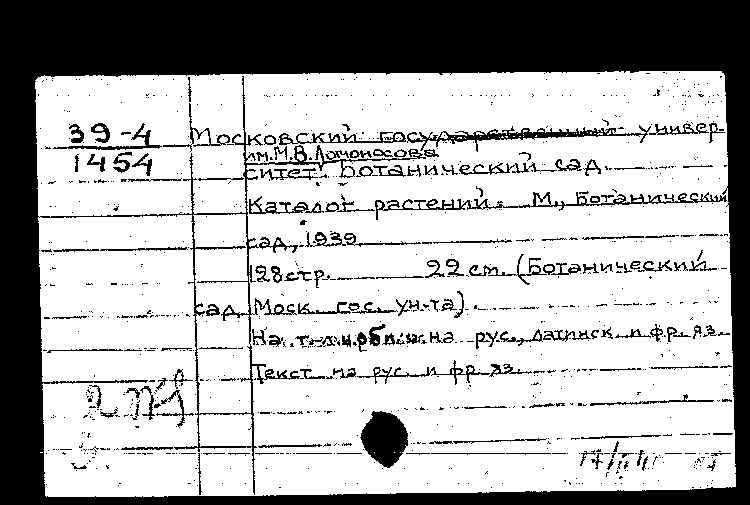 39-4
1454
Московский государственный универ-
им. М.В. Ломоносова
ситет. Ботанический сад.
Каталог растений. М., Ботанический
сад, 1939
128 стр. 22 см. (Ботанический
сад Моск. гос. ун-та).
На т. л. и обл. на рус., латинск. и фр. яз.
Текст на рус. и фр. яз.
17/II 41